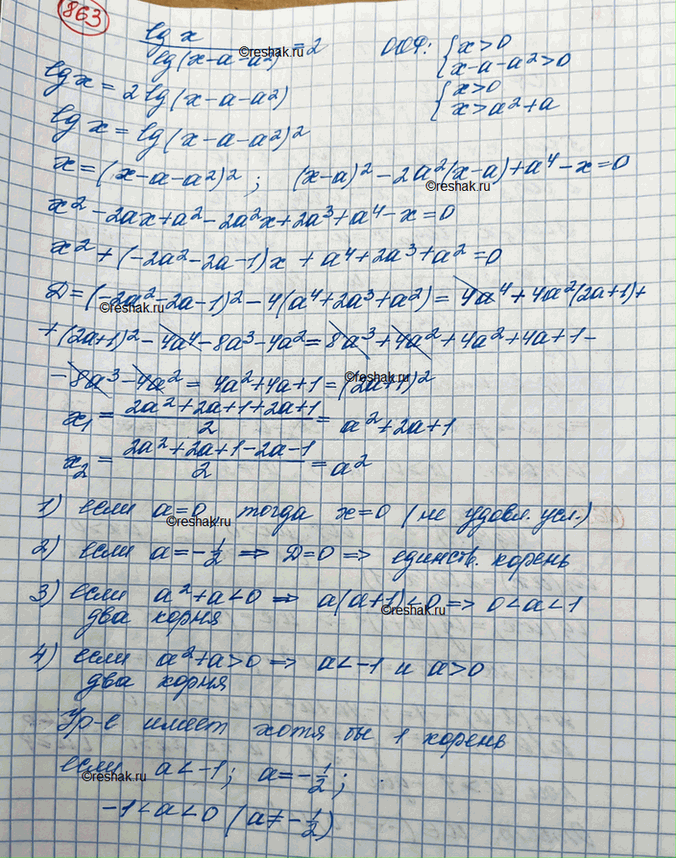 863
lg x / lg(x-a-a²) = 2 ООФ: { x>0
x-a-a²>0
lg x = 2 lg(x-a-a²) { x>0
x>a²+a
lg x = lg(x-a-a²)²
x = (x-a-a²)² ; (x-a)² - 2a²(x-a) + a⁴ - x = 0
x² - 2ax + a² - 2a²x + 2a³ + a⁴ - x = 0
x² + (-2a² - 2a - 1)x + a⁴ + 2a³ + a² = 0
D = (-2a² - 2a - 1)² - 4(a⁴ + 2a³ + a²) = 4a⁴ + 4a²(2a+1) +
+ (2a+1)² - 4a⁴ - 8a³ - 4a² = 8a³ + 4a² + 4a² + 4a + 1 -
- 8a³ - 4a² = 4a² + 4a + 1 = (2a+1)²
x₁ = (2a² + 2a + 1 + 2a + 1) / 2 = a² + 2a + 1
x₂ = (2a² + 2a + 1 - 2a - 1) / 2 = a²
1) если a=0, тогда x=0 (не удовл. усл.)
2) если a = -1/2 ⇒ D=0 ⇒ единств. корень
3) если a²+a<0 ⇒ a(a+1)<0 ⇒ 0<a<1
два корня
4) если a²+a>0 ⇒ a<-1 и a>0
два корня
Ур-е имеет хотя бы 1 корень
если a<-1; a=-1/2;
-1<a<0 (a≠-1/2)
©reshak.ru
©reshak.ru
©reshak.ru
©reshak.ru
©reshak.ru
©reshak.ru
©reshak.ru